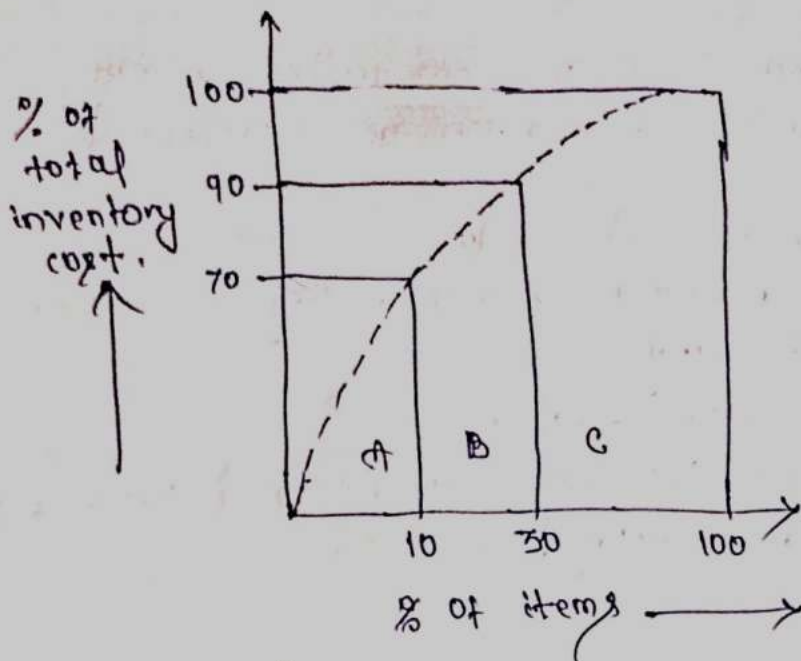 % of
total
inventory
cost.
100
90
70
A
B
C
10
30
100
% of items